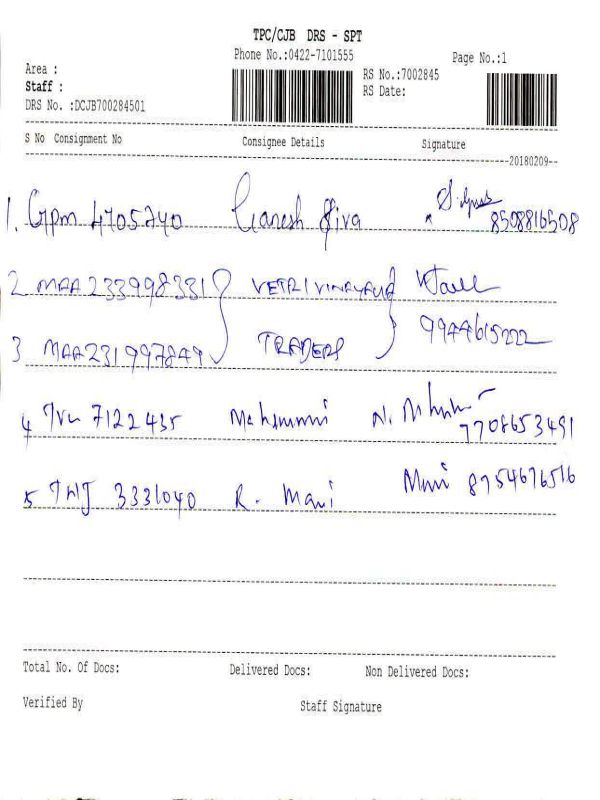 TPC/CJB DRS - SPT
Phone No.:0422-7101555
Page No.:1
Area :
RS No.:7002845
Staff :
RS Date:
DRS No. :DCJB700284501
S No Consignment No Consignee Details Signature
20180209
1. Gpm 4705740 Ganesh Siva 8508816508
2 MAA 233998331 VETRI VINAYAGA
9944615222
3 MAA231997849 TRADERS
4 7122435 N. 7708653491
5 3331040 R. Mani Mani 8754676516
Total No. Of Docs: Delivered Docs: Non Delivered Docs:
Verified By Staff Signature